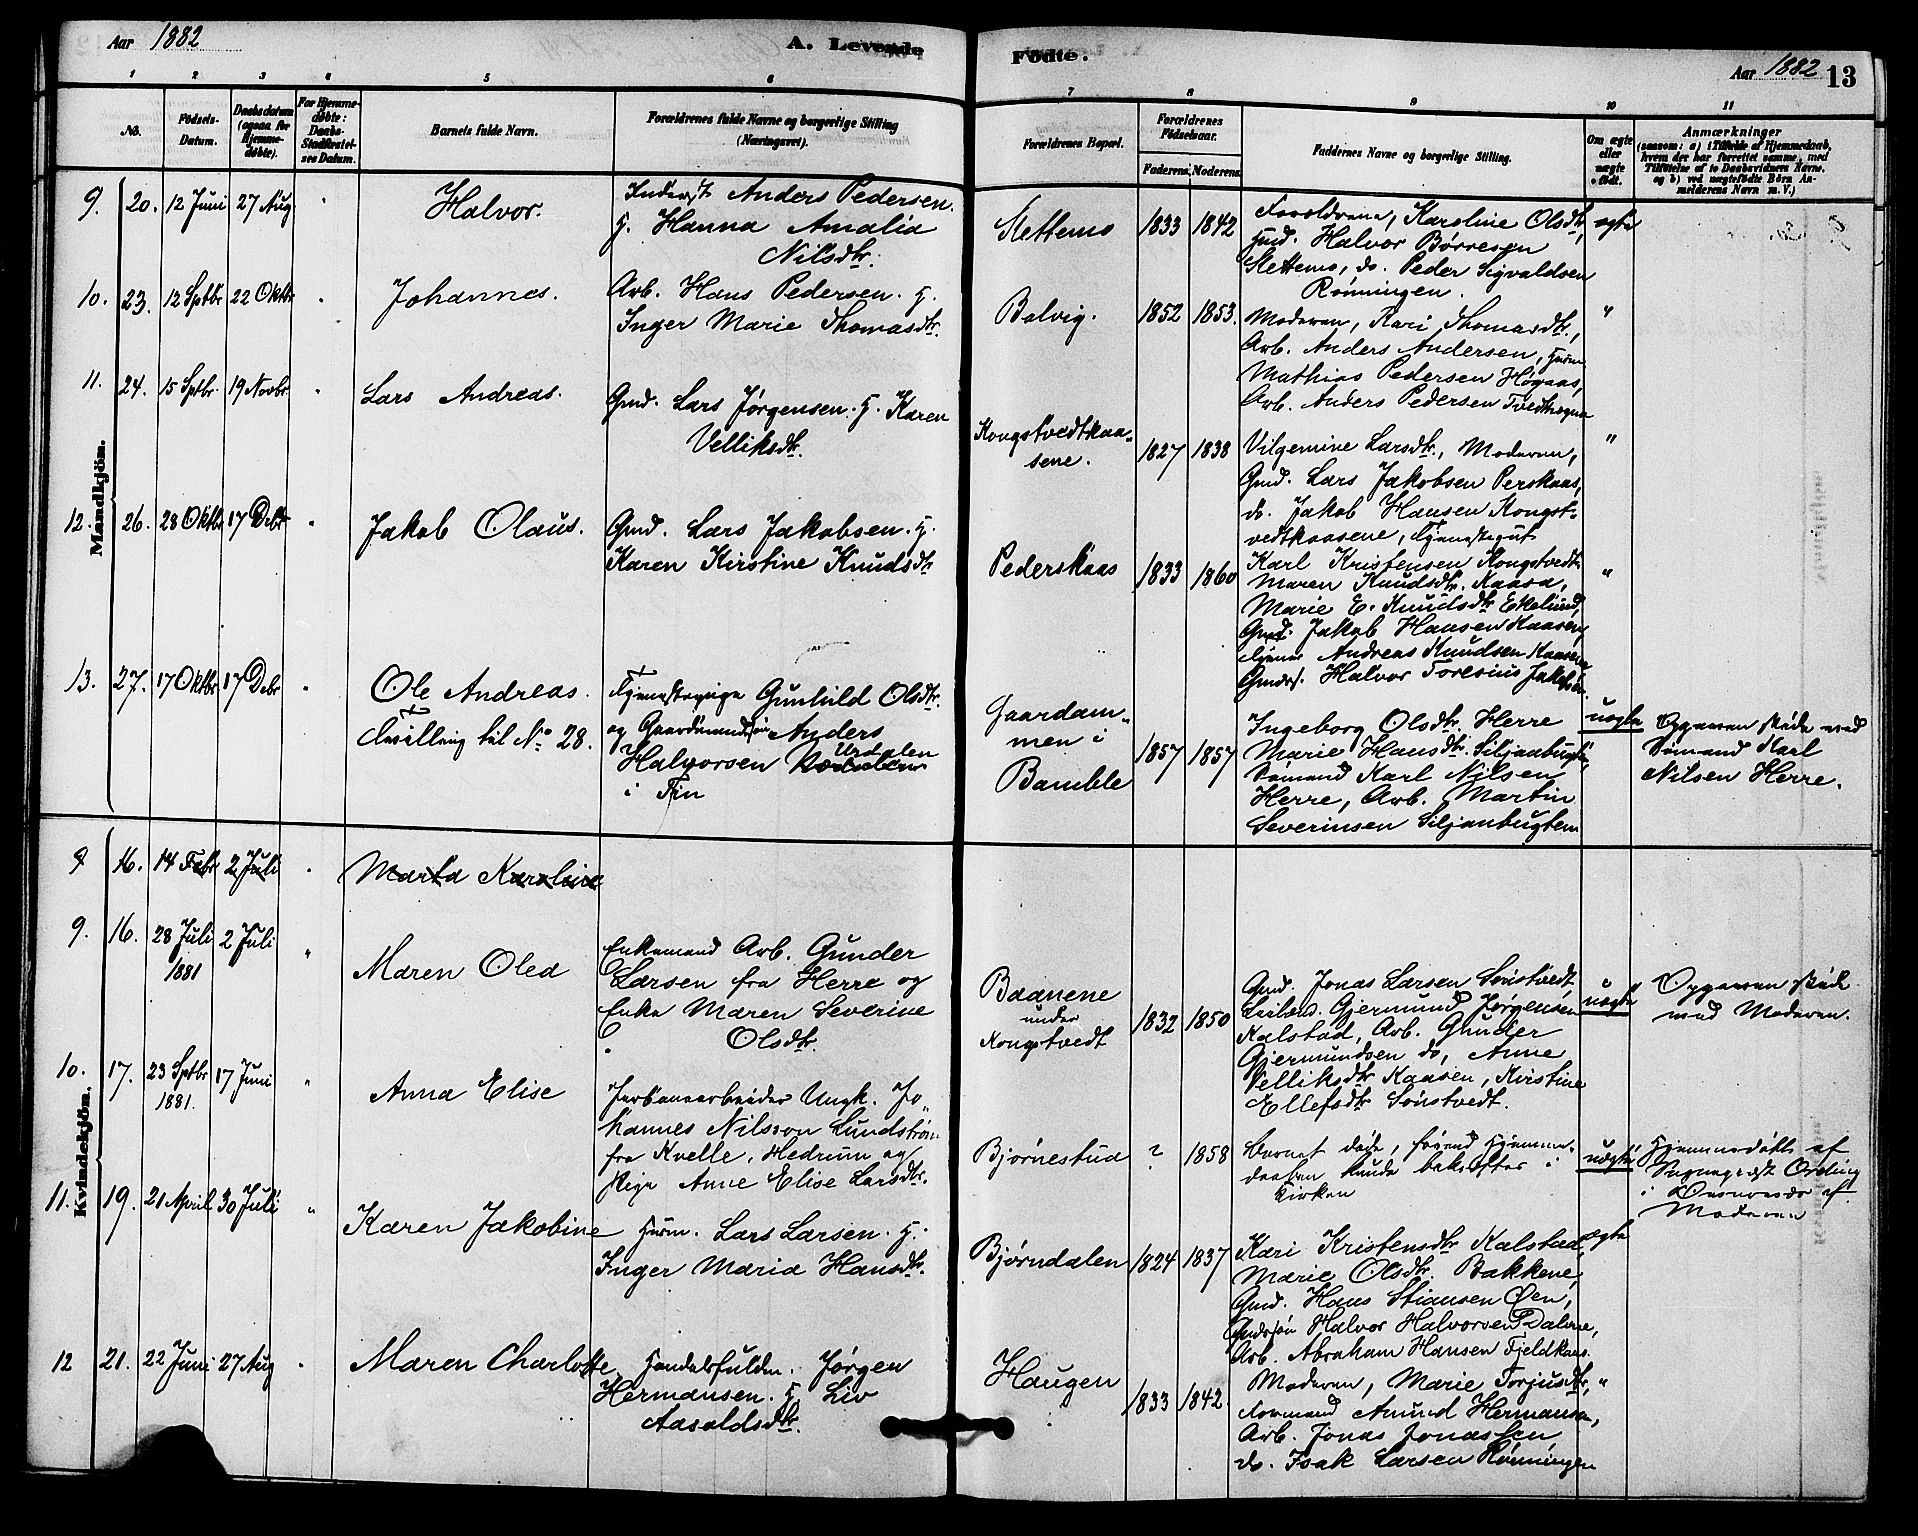 Aar 1882
A. Levende
Födte.
Aar 1882 13
1 2 3 4 5 6 7 8 9 10 11
No.
Födsels-
Datum.
Daabsdatum
(ogsaa for
Hjemme-
döbte).
For Hjemme-
döbte:
Daabs-
Stadfæstel-
ses Datum.
Barnets fulde Navn.
Forældrenes fulde Navne og borgerlige Stilling
(Næringsvei).
Forældrenes Bopæl.
Forældrenes
Födselsaar.
Faderens. Moderens.
Faddernes Navne og borgerlige Stilling.
Om ægte
eller
uægte
födt.
Anmærkninger
(saasom: a) i Tilfælde af Hjemmedaab,
hvem der har forrettet samme, med
Tilföielse af to Daabsvidners Navne,
og b) ved uægtefödte Börn An-
melderens Navn m. V.)
Mandkjön.
9. 20. 12 Juni 27 Aug "
Halvor.
Inderst Anders Pedersen.
H. Hanna Amalia
Nilsdtr.
Slettemo
1833 1842
Forældrene, Karoline Olsdtr,
Gmd. Halvor Børresen
Slettemo, do. Peder Sigvaldsen
Rønningen.
ægte
10. 23. 12 Sptbr 22 Oktbr "
Johannes.
Arb. Hans Pedersen. H.
Inger Marie Thomasdtr.
Bolvig.
1852 1853.
Moderen, Kari Thomasdtr.,
Arb. Anders Andersen, Husm
Mathias Pedersen Høgaas,
Arb. Anders Pedersen Tvedtsogna
"
11. 24. 15 Sptbr 19 Novbr "
Lars Andreas.
Gmd. Lars Jørgensen. H. Karen
Velliksdtr.
Kongstvedtkaa-
sene.
1827 1838
Vilgemine Larsdtr., Moderen,
Gmd. Lars Jakobsen Perskaas,
do. Jakob Hansen Kongst-
vedtkaasene, Tjenestegut
Karl Kristensen Kongstvedt
"
12. 26. 28 Oktbr 17 Debr "
Jakob Olaus.
Gmd. Lars Jakobsen. H.
Karen Kirstine Knudsdtr
Pederskaas
1833 1860
Maren Knudsdtr. Kaasa,
Marie E. Knudsdtr Ekelund,
Gmd. Jakob Hansen Kaasen,
tjener Andreas Knudsen Kaasene
Gmds. Halvor Toresius Jakobsen
"
13. 27. 17 Oktbr 17 Debr "
Ole Andreas.
Tvilling til No 28.
Tjenestepige Gunhild Olsdtr.
og Gaardmandssøn Anders
Halvorsen Urdalen
i Fin
Gaardam-
men i
Bamble
1857 1857
Ingeborg Olsdtr. Herre
Marie Hansdtr. Siljanbugten,
Sømand Karl Nilsen
Herre, Arb. Martin
Severinsen Siljanbugten
uægte
Opgaven skede ved
Sømand Karl
Nilsen Herre.
Kvindekjön.
8 16. 14 Febr 2 Juli "
Marta Karoline
9. 16. 28 Juli 2 Juli "
1881
Maren Olea
Enkemand Arb. Gunder
Larsen fra Herre og
Enke Maren Severine
Olsdtr.
Baanene
under
Kongstvedt
1832 1850
Gmd. Jonas Larsen Sønstvedt,
Leilænd. Gjermund Jørgensen
Kalstad, Arb. Gunder
Gjermundsen do, Anne
Velliksdtr Kaasen, Kirstine
Ellefsdtr Sønstvedt.
uægte
Opgaven skede
med Moderen.
10. 17. 23 Sptbr 17 Juni "
1881.
Anna Elise
Jernbanearbeider Ungk. Jo-
hannes Nilsson Lundstrøm
fra Kvelle, Hedrum og
Pige Anne Elise Larsdtr.
Bjørnestud
? 1858
Barnet døde, førend Hjemme-
daaben kunde bekræftes i
Kirken
uægte
Hjemmedøbt af
Sognepræst Ording
i Overvær af
Moderen
11. 19. 21 April 30 Juli "
Karen Jakobine
Husm. Lars Larsen. H.
Inger Maria Hansdtr.
Bjørndalen
1824 1837
Kari Kristensdtr Kalstad,
Marie Olsdtr. Bakkene,
Gmd. Hans Stiansen Øen,
Gmdssøn Halvor Halvorsen Dalene,
Arb. Abraham Hansen Fjeldkaas.
ægte
12 21. 22 Juni 27 Aug "
Maren Charlotte
Handelsfuldm. Jørgen
Hermansen. H Liv
Aasoldsdtr.
Haugen
1833 1842.
Moderen, Marie Torjusdtr,
Formand Amund Hermansen,
Arb. Jonas Jonassen
do. Isak Larsen Rønningen
"